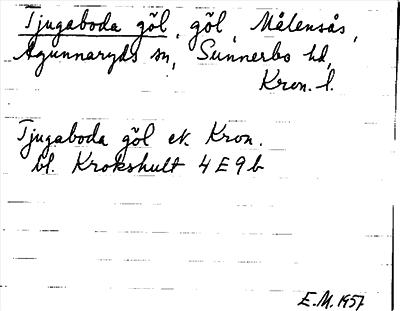 Tjugaboda göl, göl, Målensås,
Agunnaryds sn, Sunnerbo hd,
Kron. l.
Tjugaboda göl ek. Kron.
bl. Krokshult 4E9b
E.M. 1957